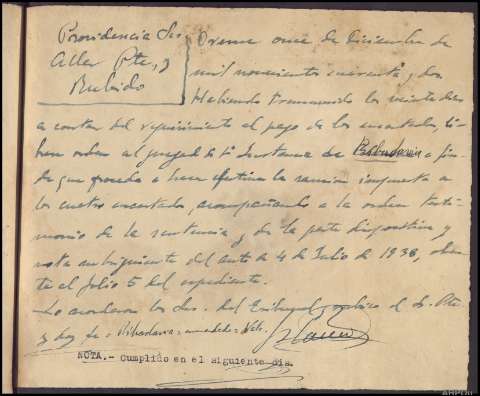 Providencia Sres
Aller Pte, y
Bubido
Orense once de Diciembre de
mil novecientos cuarenta y dos
Habiendo transcurrido los veinte dias
a contar del requerimiento al pago de los encartados, li-
bren orden al juzgado de 1ª Instancia de Ribadavia a fin
de que proceda a hacer efectiva la sanción impuesta a
los cuatro encartados, acompañando a la orden testi-
monio de la sentencia y de la parte dispositiva y
del auto de 4 de Julio de 1938, obran-
te al folio 5 del expediente.
Lo acordaron los Sres. del Tribunal y rubrica el Sr. Pte
y doy fe = Ribadavia = enmendado = Vale.
NOTA.- Cumplido en el siguiente dia.